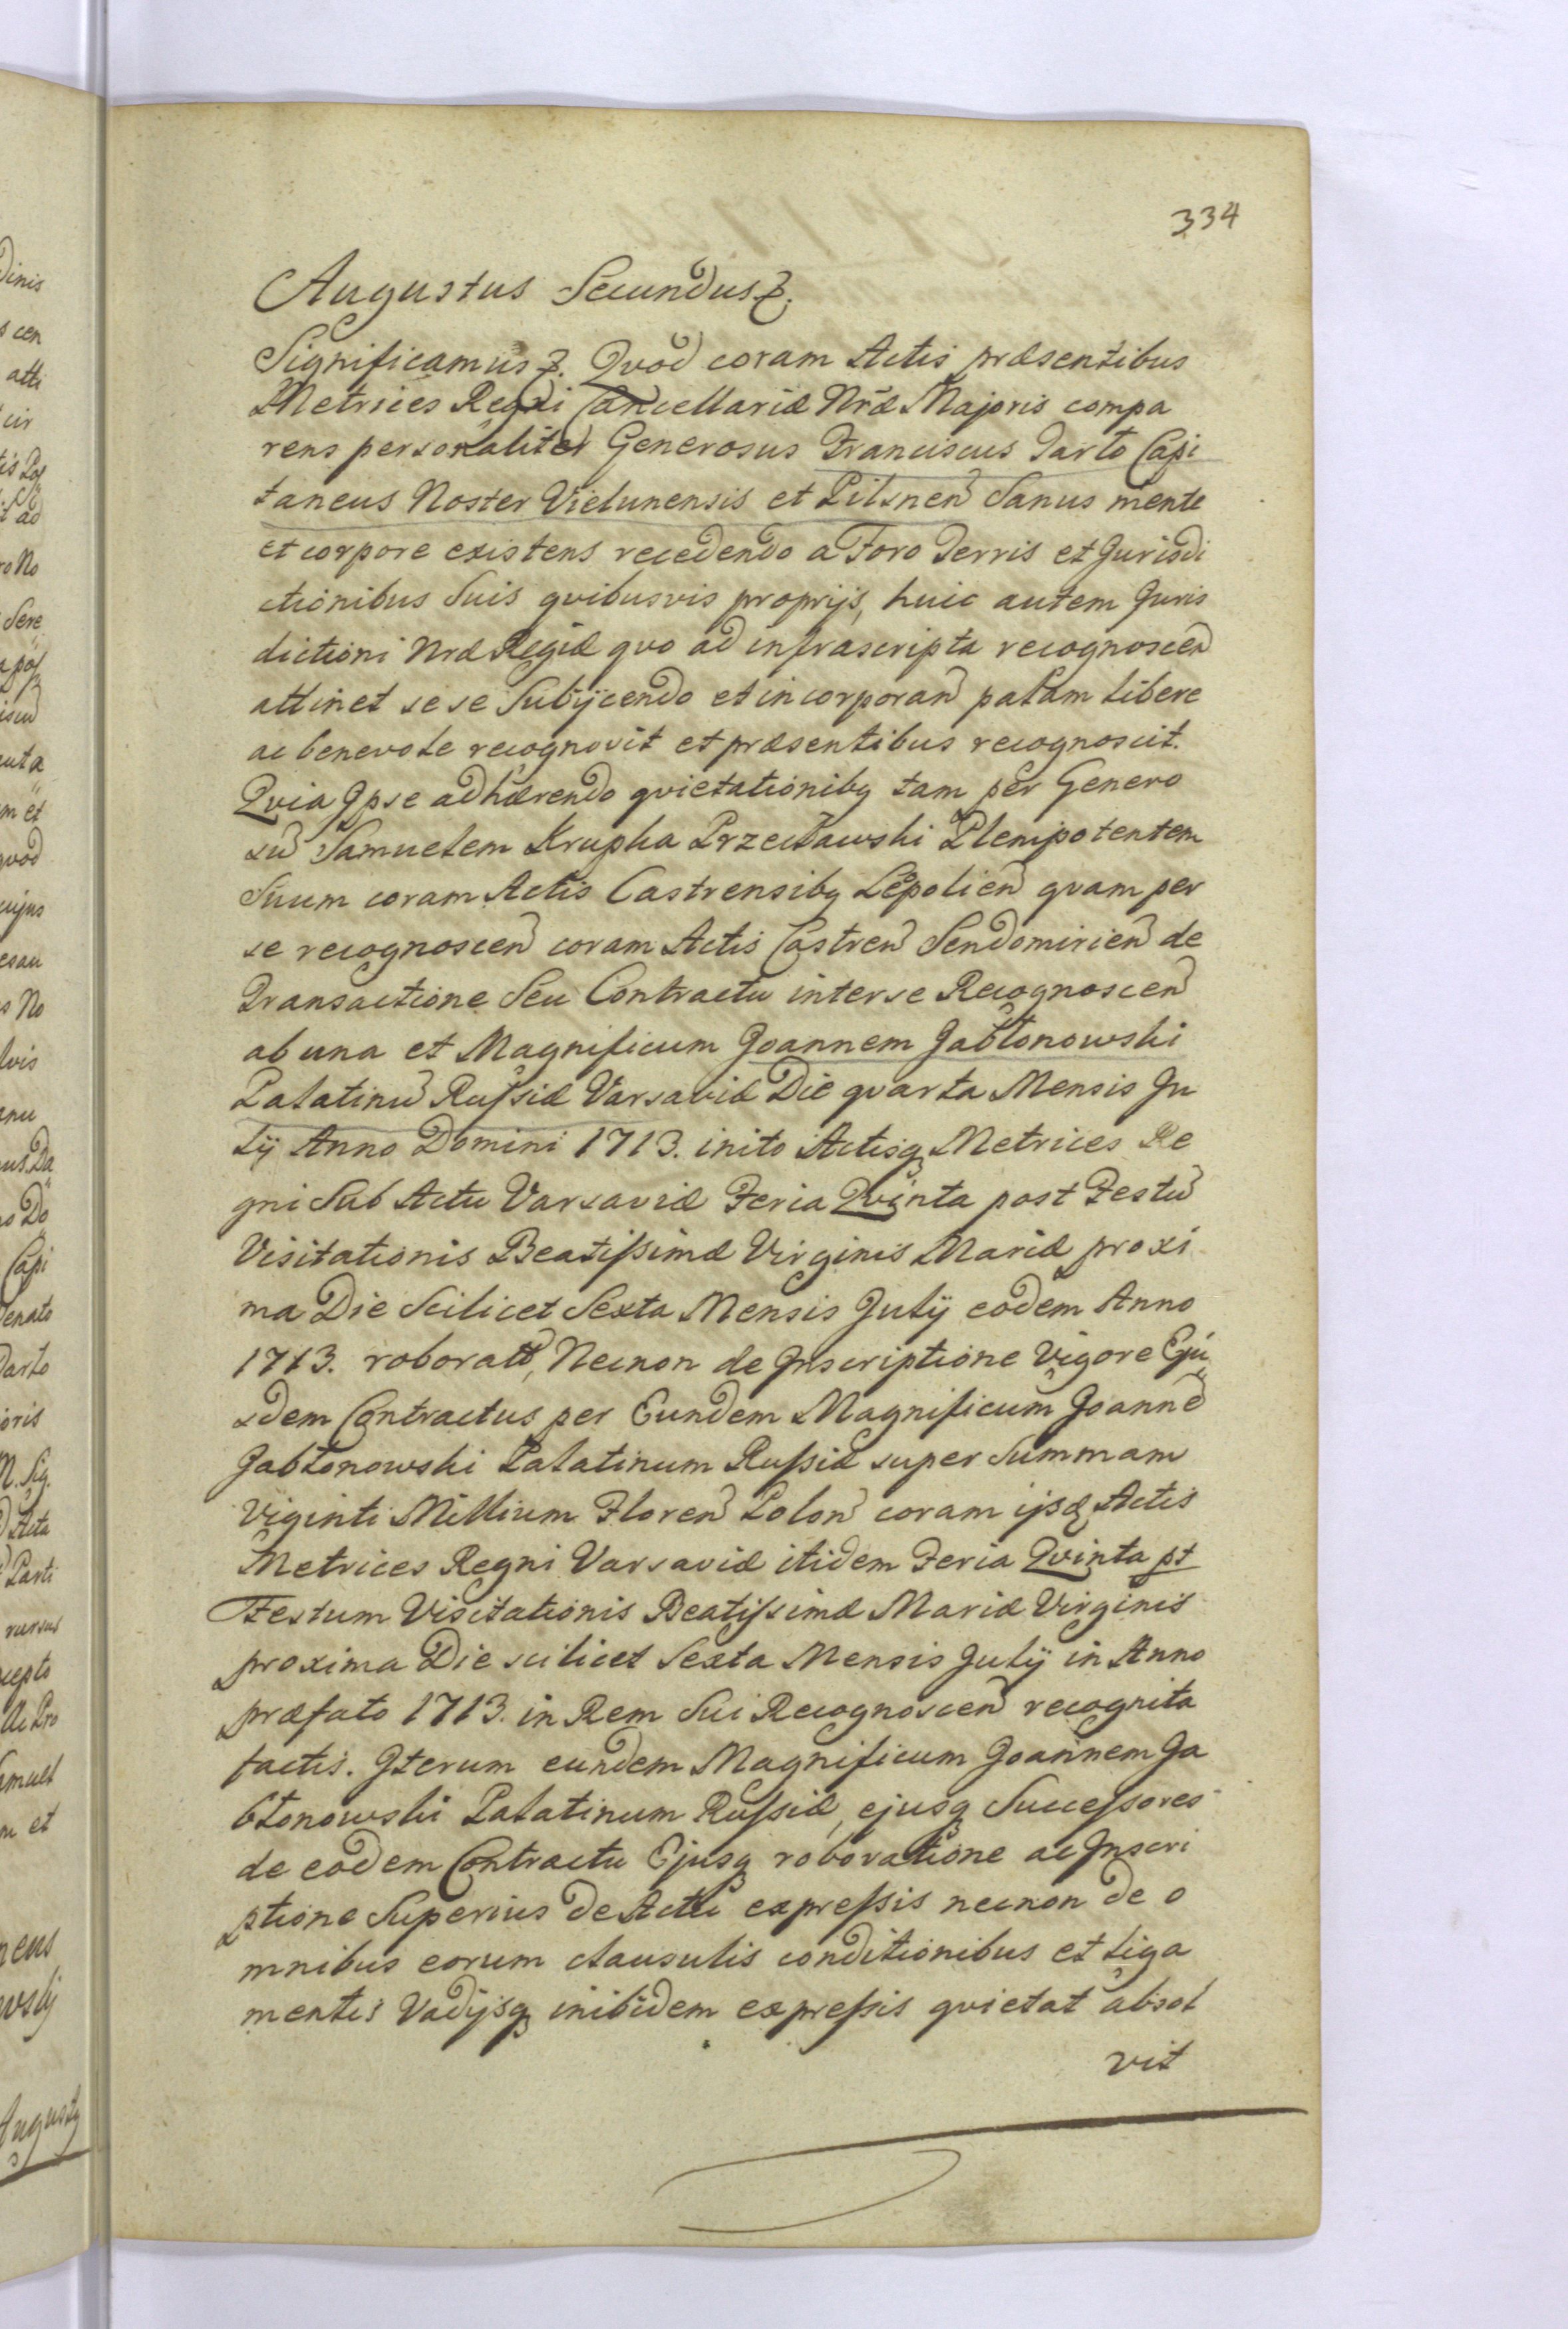 334
Augustus Secundus &.
Significamus &. Qvod coram Actis præsentibus
Metrices Regni Cancellariæ Nr̃æ Majoris compa
rens personaliter Generosus Franciscus Tarło Capi
taneus Noster Vielunensis et Pilsneñ Sanus mente
et corpore existens recedendo a Foro Terris et Jurisdi
ctionibus Suis qvibusvis proprijs, huic autem Juris
dictioni Nræ Regiæ qvo ad infrascripta recognosceñ
attinet se se Subijcendo et incorporañ palam libere
ac benevole recognovit et præsentibus recognoscit.
Qvia Ipse adhærendo qvietationibq tam per Genero
sũ Samuelem Krupka Przecławski Plenipotentem
Suum coram Actis Castrensibq Leopolieñ qvam per
se recognosceñ coram Actis Castreñ Sendomirieñ de
Transactione Seu Contractu inter se Recognosceñ
ab una et Magnificum Joannem Jabłonowski
Palatinũ Russiæ Varsaviæ Die qvarta Mensis Ju
lij Anno Domini 1713. inito Actisq Metrices Re
gni Sub Actu Varsaviæ Feria Qvinta post Festũ
Visitationis Beatissimæ Virginis Mariæ proxi
ma Die Scilicet Sexta Mensis Julij eodem Anno
1713. roborat̃, Necnon de Inscriptione Vigore Eju
sdem Contractus per Eundem Magnificum Joannẽ
Jabłonowski Palatinum Russiæ super Summam
Viginti Millium Floreñ Poloñ coram ijsđ Actis
Metrices Regni Varsaviæ itidem Feria Qvinta pt
Festum Visitationis Beatissimæ Mariæ Virginis
proxima Die scilicet Sexta Mensis Julij in Anno
præfato 1713. in Rem Sui Recognosceñ recognita
factis. Iterum eundem Magnificum Joannem Ja
błonowski Palatinum Russiæ, ejusq Successores
de eodem Contractu Ejusq roboratione ac Inscri
ptione Superius de Actu expressis necnon de o
mnibus eorum clausulis conditionibus et liga
mentis Vadijsq inibidem expressis qvietat absol
vit